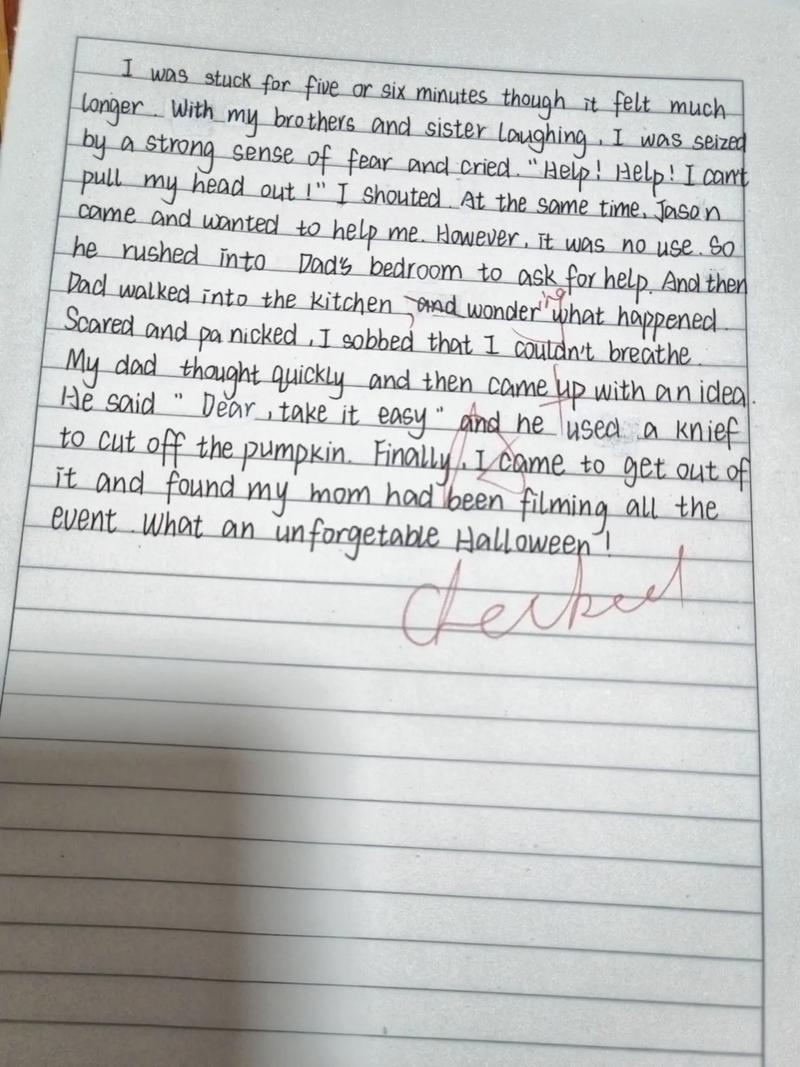 I was stuck for five or six minutes though it felt much
longer. With my brothers and sister laughing, I was seized
by a strong sense of fear and cried. "Help! Help! I can't
pull my head out!" I shouted. At the same time, Jason
came and wanted to help me. However, it was no use. So
he rushed into Dad's bedroom to ask for help. And then
Dad walked into the kitchen, and wondering what happened.
Scared and panicked, I sobbed that I couldn't breathe.
My dad thought quickly and then came up with an idea.
He said "Dear, take it easy" and he used a knief
to cut off the pumpkin. Finally, I came to get out of
it and found my mom had been filming all the
event. What an unforgetable Halloween!
checked